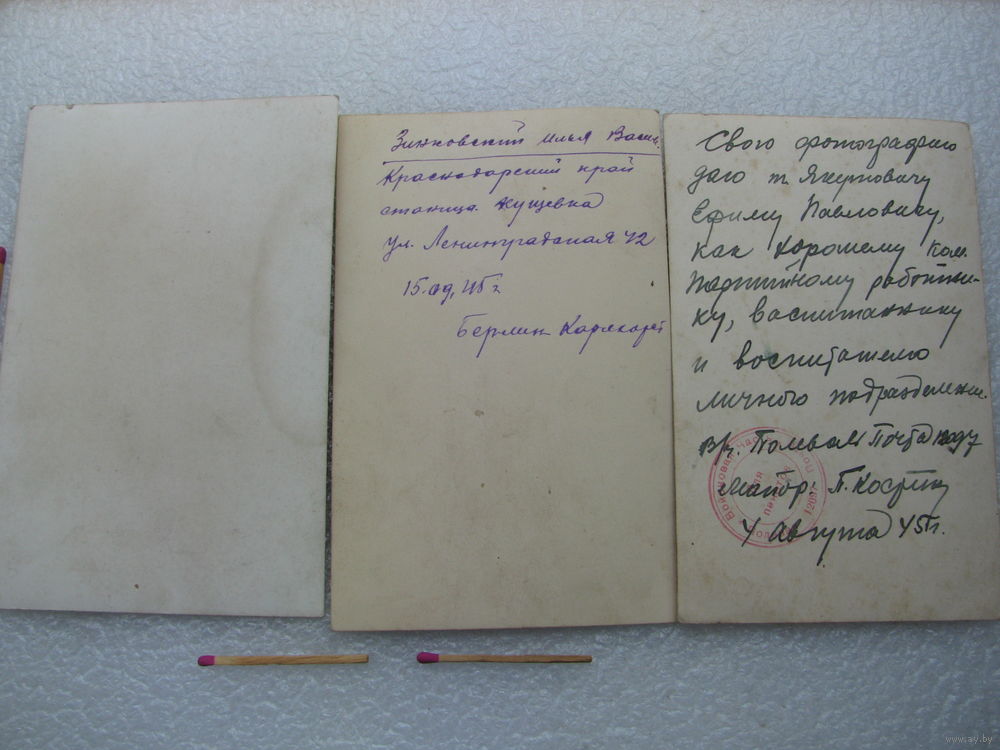 Зинковский Илья Васил.
Краснодарский край
станица Кущевка
ул. Ленинградская 42
15.09.45 г
Берлин Карлхорст
Свою фотографию
даю т. Якутовичу
Ефиму Павловичу,
как хорошему ком.
партийному работни-
ку, воспитаннику
и воспитателю
личного подразделение.
В/ч. Полевая Почта 12097
Майор П.
4 Августа 45 г.
Войсковая Часть
www.ay.by